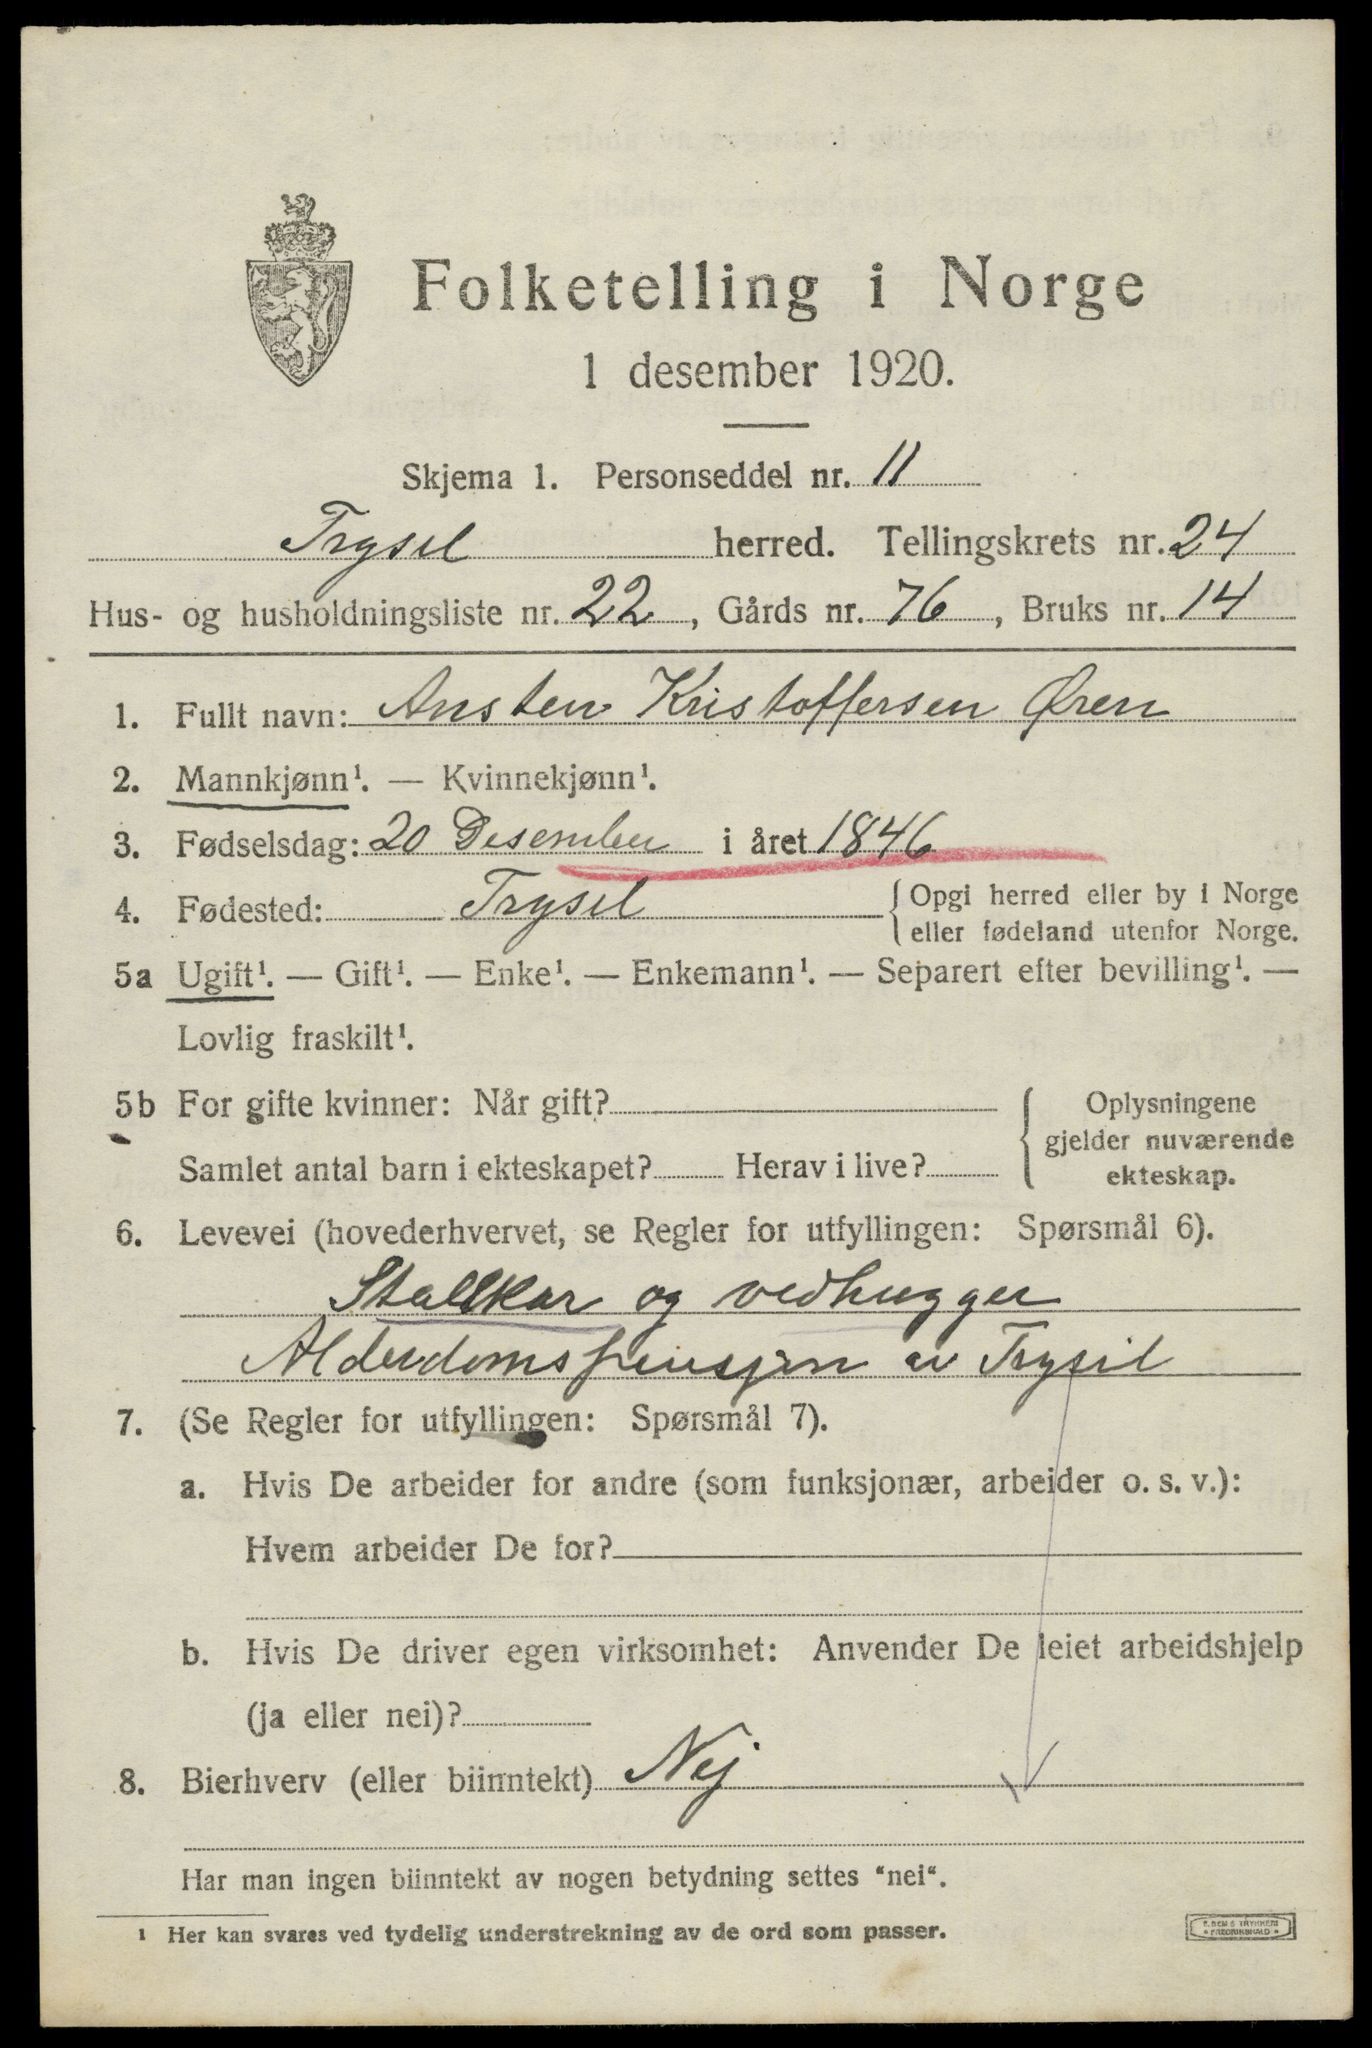 Folketelling i Norge
1 desember 1920.
Skjema 1. Personseddel nr. 11
Trysil herred. Tellingskrets nr. 24
Hus- og husholdningsliste nr. 22, Gårds nr. 76, Bruks nr. 14
1. Fullt navn: Ansten Kristoffersen Øren
2. Mannkjønn¹. — Kvinnekjønn¹.
3. Fødselsdag: 20 Desember i året 1846
4. Fødested: Trysil { Opgi herred eller by i Norge
eller fødeland utenfor Norge.
5a Ugift¹. — Gift¹. — Enke¹. — Enkemann¹. — Separert efter bevilling¹. —
Lovlig fraskilt¹.
5b For gifte kvinner: Når gift?
Samlet antal barn i ekteskapet? Herav i live?
{ Oplysningene
gjelder nuværende
ekteskap.
6. Levevei (hovederhvervet, se Regler for utfyllingen: Spørsmål 6).
Stallkar og vedhugger
Alderdomspensjon av Trysil
7. (Se Regler for utfyllingen: Spørsmål 7).
a. Hvis De arbeider for andre (som funksjonær, arbeider o. s. v.):
Hvem arbeider De for?
b. Hvis De driver egen virksomhet: Anvender De leiet arbeidshjelp
(ja eller nei)?
8. Bierhverv (eller biinntekt) Nej
Har man ingen biinntekt av nogen betydning settes "nei".
¹ Her kan svares ved tydelig understrekning av de ord som passer.